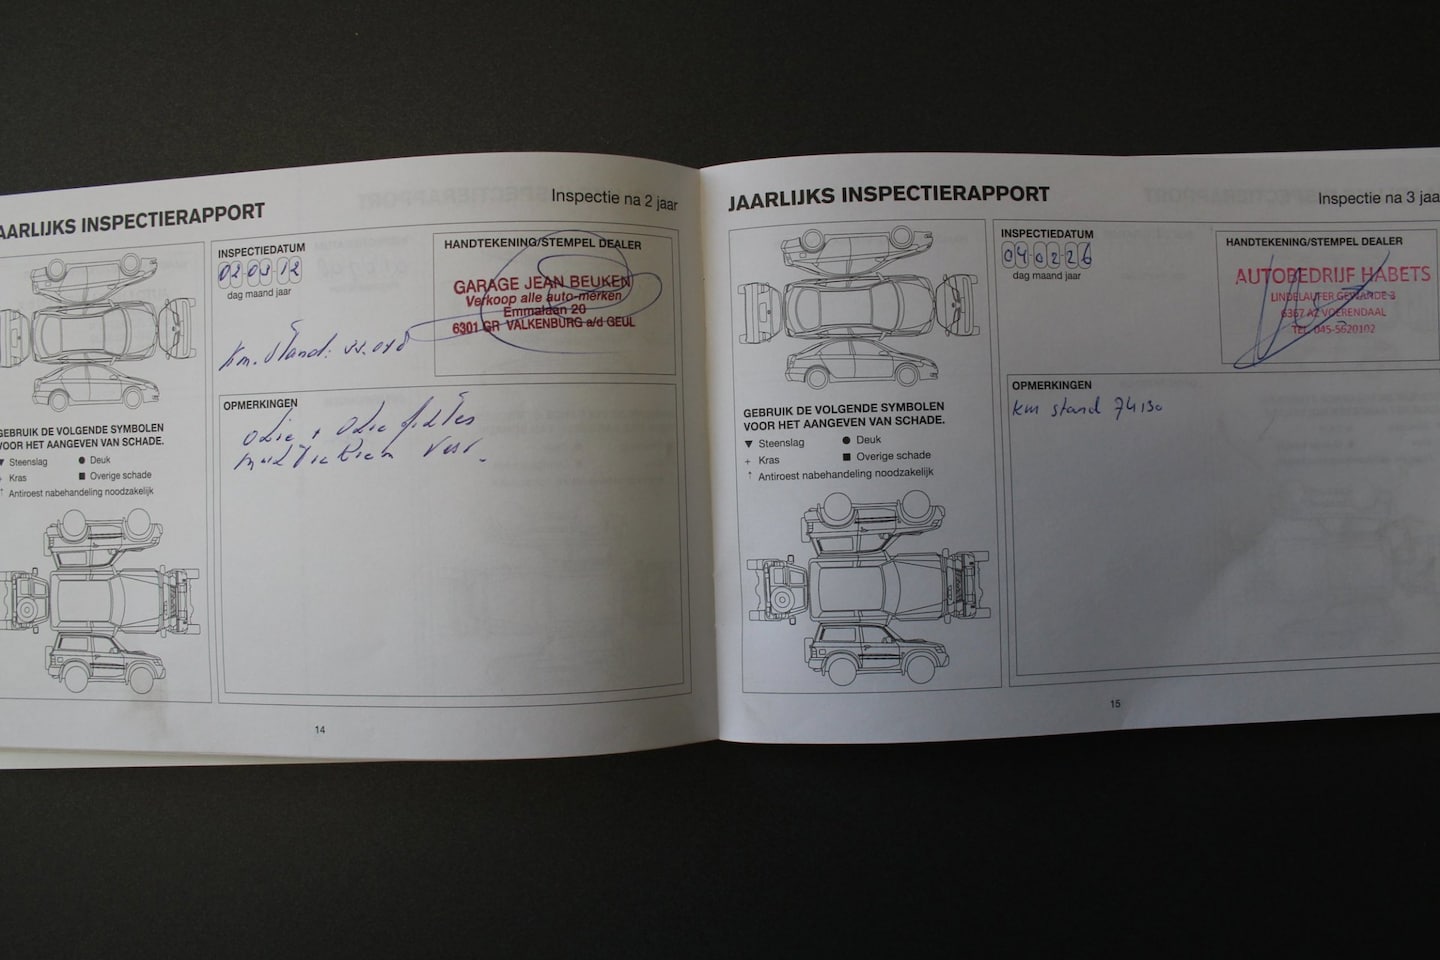 AARLIJKS INSPECTIERAPPORT
Inspectie na 2 jaar
INSPECTIEDATUM
02 03 12
dag maand jaar
HANDTEKENING/STEMPEL DEALER
GARAGE JEAN BEUKEN
Verkoop alle auto-merken
Emmalaan 20
6301 GR VALKENBURG a/d GEUL
Km. Stand:
OPMERKINGEN
Olie + Olie filter
GEBRUIK DE VOLGENDE SYMBOLEN
VOOR HET AANGEVEN VAN SCHADE.
▼ Steenslag ● Deuk
+ Kras ■ Overige schade
↑ Antiroest nabehandeling noodzakelijk
14
JAARLIJKS INSPECTIERAPPORT
Inspectie na 3 jaa
INSPECTIEDATUM
04 02 26
dag maand jaar
HANDTEKENING/STEMPEL DEALER
AUTOBEDRIJF HABETS
LINDELAUFER GEWANDE 3
6367 AZ VOERENDAAL
TEL. 045-5620102
OPMERKINGEN
km stand 74130
GEBRUIK DE VOLGENDE SYMBOLEN
VOOR HET AANGEVEN VAN SCHADE.
▼ Steenslag ● Deuk
+ Kras ■ Overige schade
↑ Antiroest nabehandeling noodzakelijk
15